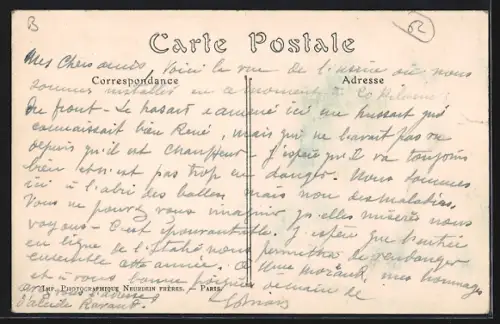 B
62
Carte Postale
Correspondance
Adresse
Mes Chers amis, Voici la vue de l'usine où nous
sommes installés en ce moment à 20 Kilom
du front - Le hasart a amené ici un hussart qui
connaissait bien René, mais qui ne l'avait pas vu
depuis qu'il est chauffeur. J'espère qu'il va toujours
bien et n'est pas trop en danger. Nous sommes
ici à l'abri des balles, mais non des maladies.
Vous ne pouvez vous imaginer qu'elles misères nous
voyons - C'est épouvantable. J'espère que l'entrée
en ligne de l'Italie nous permettra de vendanger
ensemble cette année. à Mme mes hommages
et à vous bonne poignée de main de
IMP. PHOTOGRAPHIQUE NEURDEIN FRÈRES. — PARIS.
avez vous l'adresse
d'Alcide Ravaud?